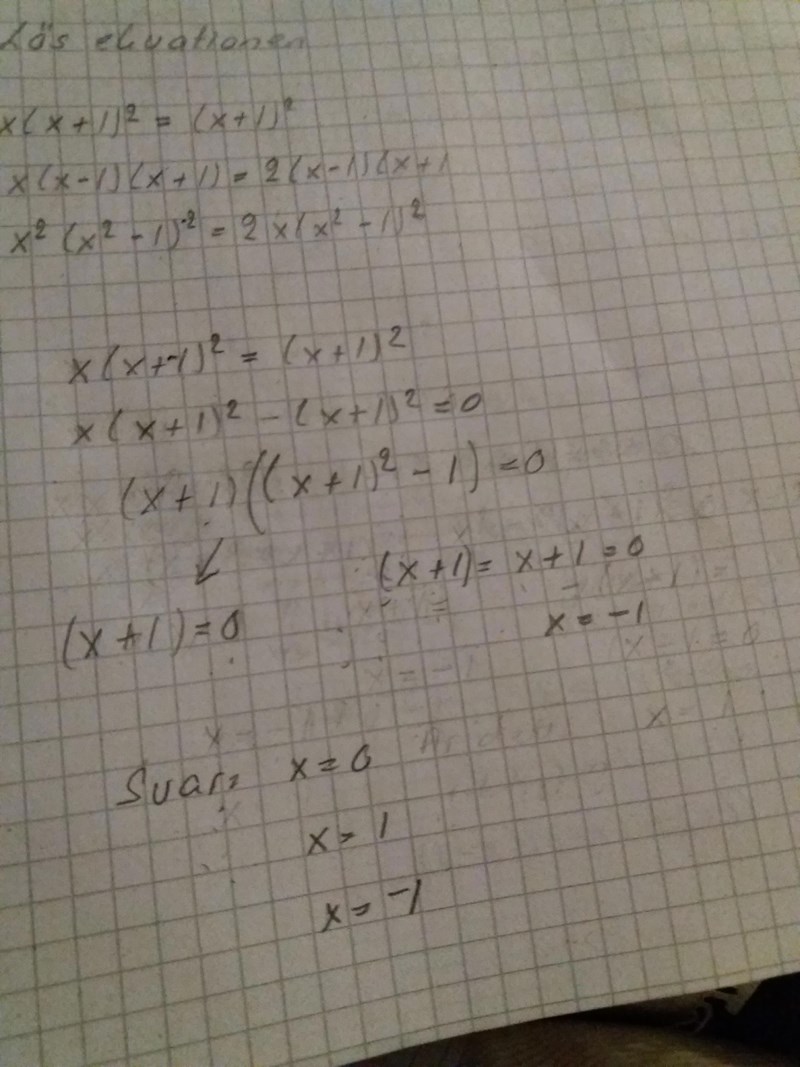 Lös ekvationen
x(x+1)² = (x+1)²
x(x-1)(x+1) = 2(x-1)(x+1
x²(x²-1)² = 2x(x²-1)²
x(x+1)² = (x+1)²
x(x+1)² - (x+1)² = 0
(x+1)((x+1)² - 1) = 0
↙ (x+1) = x+1 = 0
(x+1) = 0 x = -1
Svar: x = 0
x = 1
x = -1